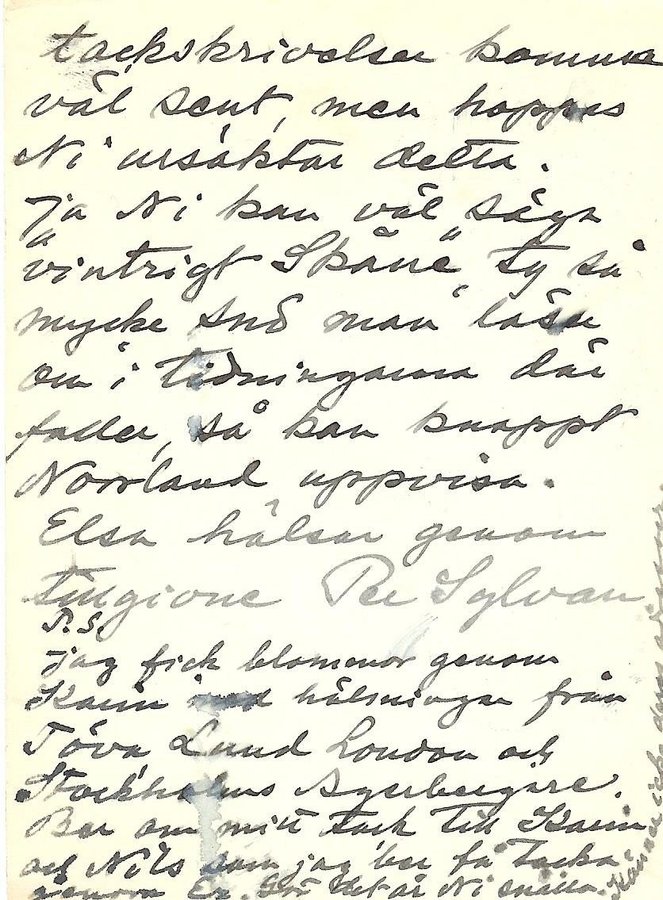 tackskrivelser komma
väl sent, men hoppas
Ni ursäktar detta.
Ja Ni kan väl säga
"vintrigt Skåne", ty så
mycke snö man läser
om i tidningarna där
faller, så kan knappt
Norrland uppvisa.
Elsa hälsar genom
Per Sylvan
P.S.
Jag fick blommor genom
Karin med hälsningar från
Töva Lund London och
Stockholms
Ber om mitt tack till Karin
och Nils som jag ber få tacka
genom Er. Gör det är Ni snälla.
Känner icke deras